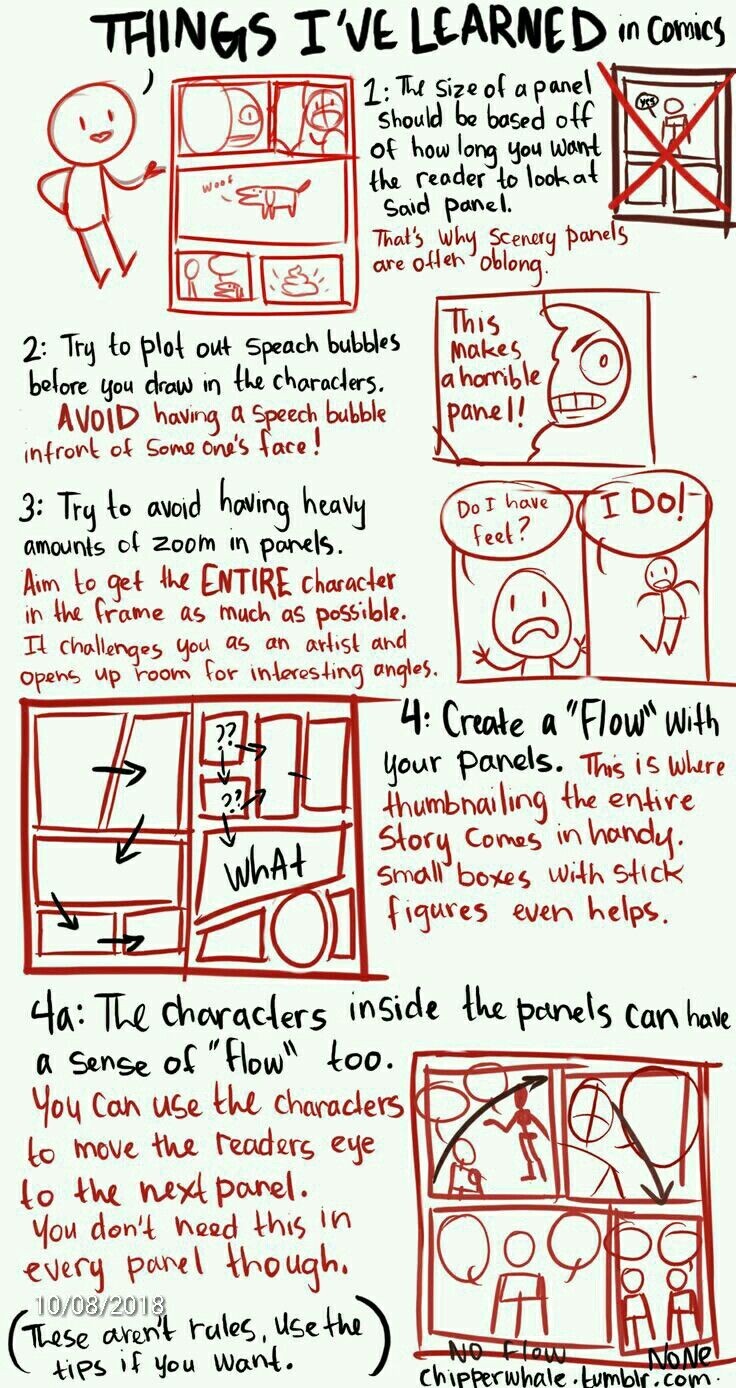 THINGS I'VE LEARNED in Comics
1: The Size of a panel
Should be based off
of how long you want
the reader to look at
Said panel.
That's why Scenery panels
are often oblong.
woof
yes
2: Try to plot out Speach bubbles
before you draw in the characters.
AVOID having a Speech bubble
infront of Some one's face!
This
makes
a horrible
panel!
3: Try to avoid having heavy
amounts of zoom in panels.
Aim to get the ENTIRE character
in the frame as much as possible.
It challenges you as an artist and
opens up room for interesting angles.
Do I have
feet?
I Do!
??
??
WhAt
4: Create a "Flow" with
your panels. This is where
thumbnailing the entire
Story Comes in handy.
Small boxes with stick
figures even helps.
4a: The characters inside the panels can have
a sense of "flow" too.
You Can use the characters
to move the readers eye
to the next panel.
You don't need this in
every panel though.
10/08/2018
(These aren't rules, Use the
tips if you want.)
NO Flow
NoNe
chipperwhale.tumblr.com.